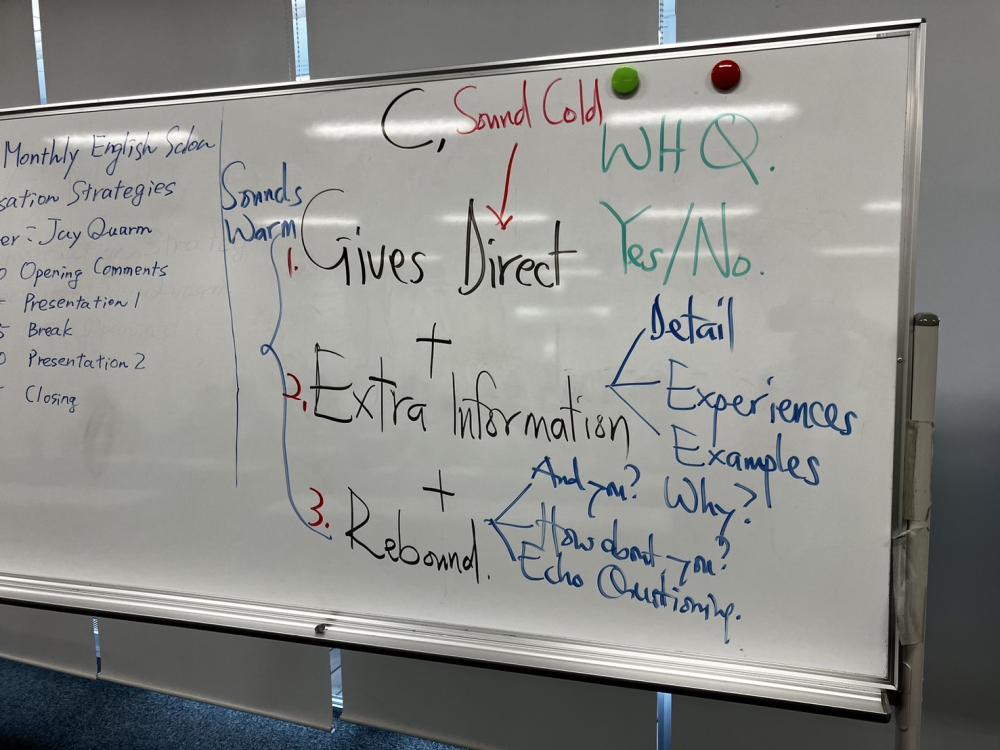 Monthly English Salon
sation Strategies
er: Jay Quarm
0 Opening Comments
Presentation 1
5 Break
0 Presentation 2
Closing
C, Sound Cold
WH Q.
Yes/No.
Sounds
Warm
1. Gives Direct
+
2. Extra Information
Detail
Experiences
Examples
+
3. Rebound.
And you? Why?
How about you?
Echo Questioning.